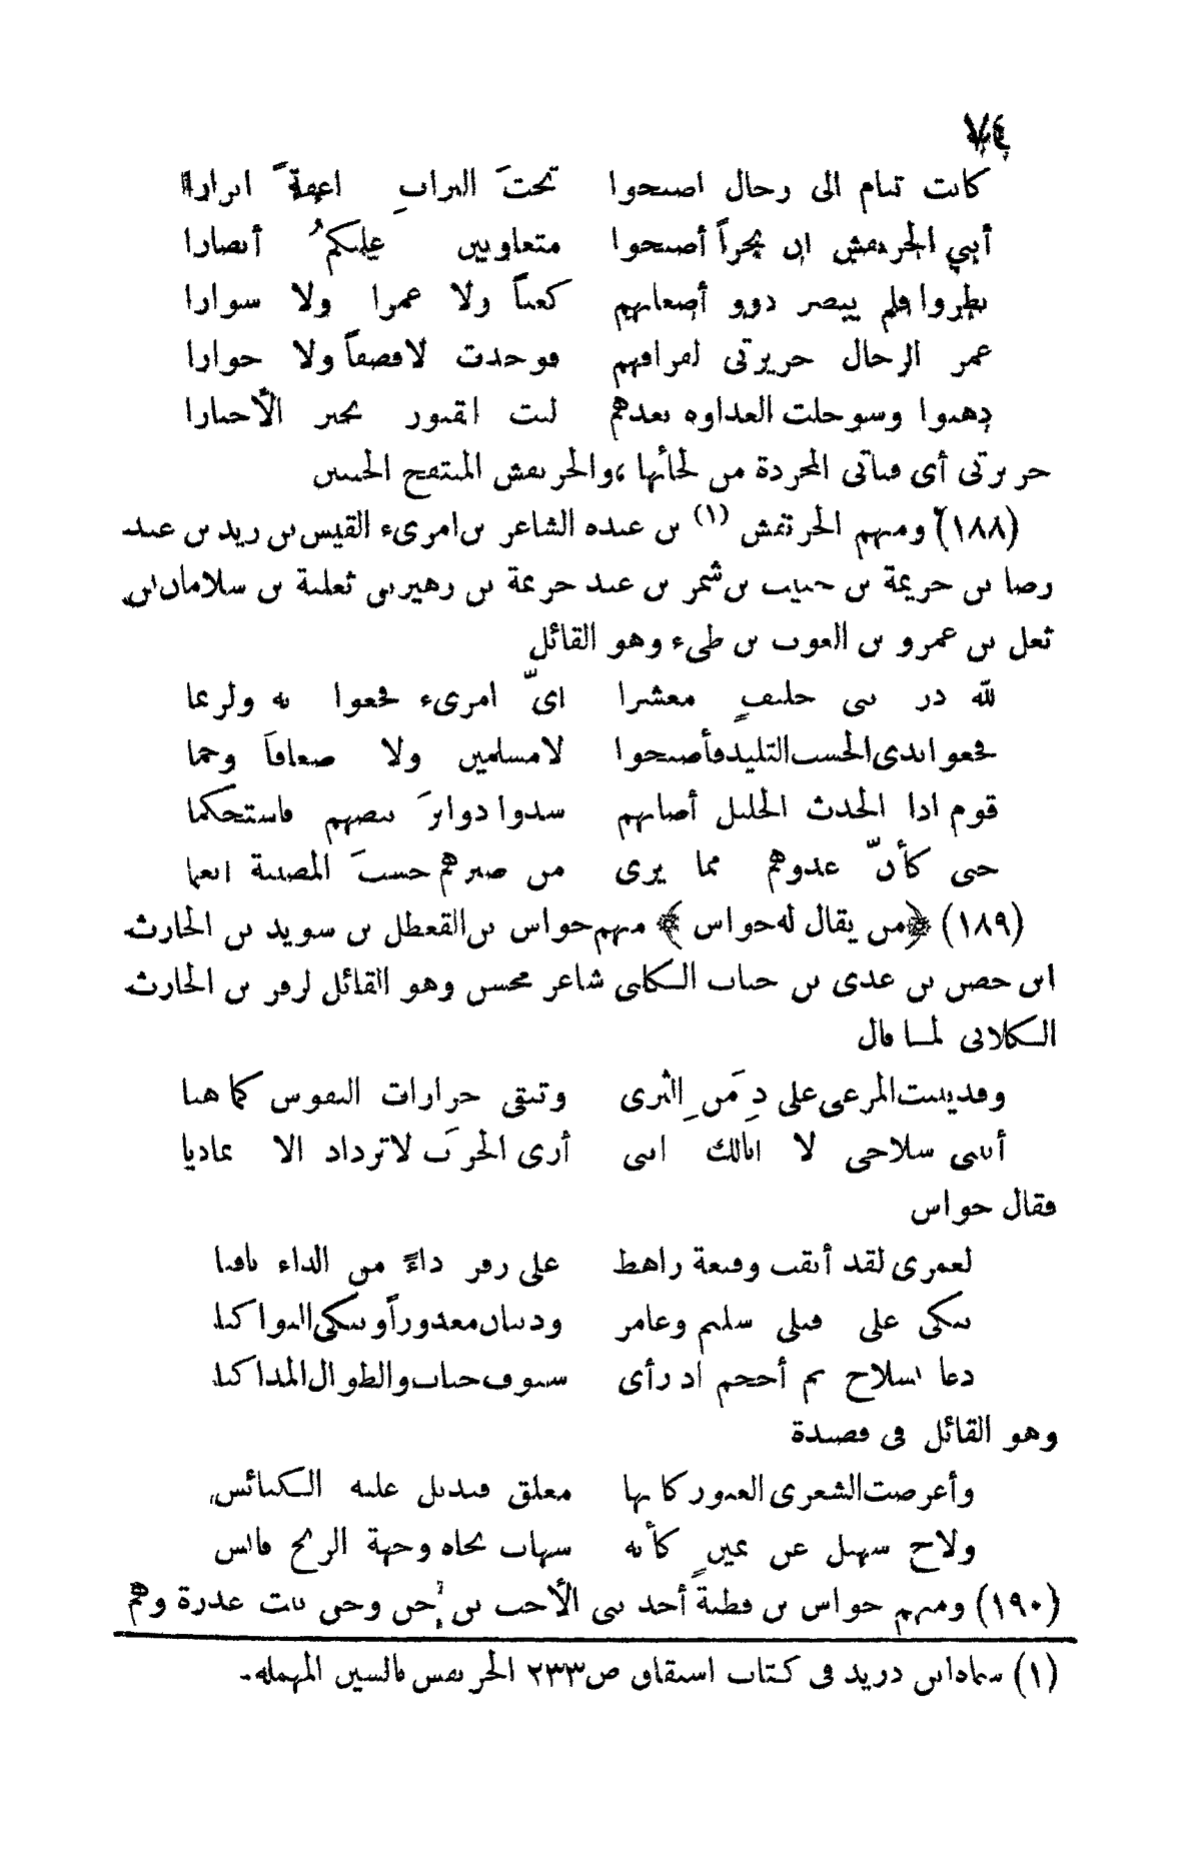 ٧٤
كانت تنام الى رجال اصبحوا تحتَ الترابِ اعفةً ابرارا
أبني الجرنفش ان بجراً أصبحوا متعاونين عليكمُ أنصارا
نظروا فلم يبصر ذوو أضعانهم كعباً ولا عمرا ولا سوارا
غمر الرجال جريرتى لفراقهم فوجدت لا قصفاً ولا خوارا
ذهبوا وسوجلت العداوه بعدهم ليت القبور تخبر الأخبارا
جريرتى أى قناتى المجردة من لحائها ،والجرنفش المنتفج الجنبين
(١٨٨) ومنهم الجرنفش (١) بن عبده الشاعر بن امرىء القيس بن زيد بن عبد
رضا بن جزيمة بن حبيب بن شمر بن عبد جزيمة بن زهير بن ثعلبة بن سلامان بن
ثعل بن عمرو بن الغوث بن طىء وهو القائل
لله در بنى خليفٍ معشرا اىّ امرىء فجعوا به ولربما
فجعوا بذى الحسب التليد فأصبحوا لا مسلمين ولا ضعافاَ وجما
قوم اذا الحدث الجليل أصابهم سدوا دوابرَ بيضهم فاستحكما
حتى كأنّ عدوهم مما يرى من صبرهم حسبَ المصيبة انعما
(١٨٩) ﴿من يقال له جواس﴾ منهم جواس بن القعطل بن سويد بن الحارث
ابن حصن بن عدى بن جناب الكلبى شاعر محسن وهو القائل لزفر بن الحارث
الكلابى لما قال
وقد ينبت المرعى على دِمَنِ الثرى وتبقى حزازات النفوس كما هيا
أبينى سلاحى لا ابالك اننى أرى الحربَ لا تزداد الا تماديا
فقال جواس
لعمرى لقد أبقت وقيعة راهط على زفر داءً من الداء باقيا
تبكى على قتلى سليم وعامر وذبيان معذوراً وتبكى البواكيا
دعا بسلاح ثم أحجم اذ رأى سيوف جناب والطوال المذاكيا
وهو القائل فى قصيدة
وأعرضت الشعرى العبور كانها معلق قنديل عليه الكنائس
ولاح سهيل عن يمينٍ كأنه شهاب نحاه وجهة الريح قابس
(١٩٠) ومنهم جواس بن قطبةَ أحد بنى الأحب بن حن وحن بيت عذرة وهم
(١) سماه ابن دريد فى كتاب اشتقاق ص٢٣٣ الجرنفس بالسين المهمله.